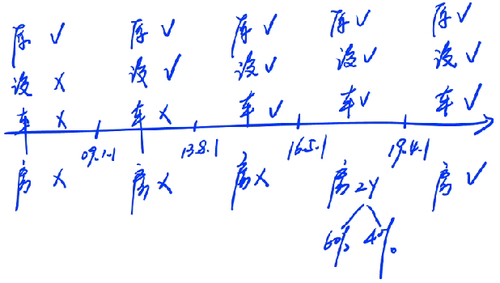 库 ✓ 库 ✓ 库 ✓ 库 ✓ 库 ✓
设 × 设 ✓ 设 ✓ 设 ✓ 设 ✓
车 × 车 × 车 ✓ 车 ✓ 车 ✓
09.1.1 13.8.1 16.5.1 19.4.1
房 × 房 × 房 × 房 2Y 房 ✓
60% 40%